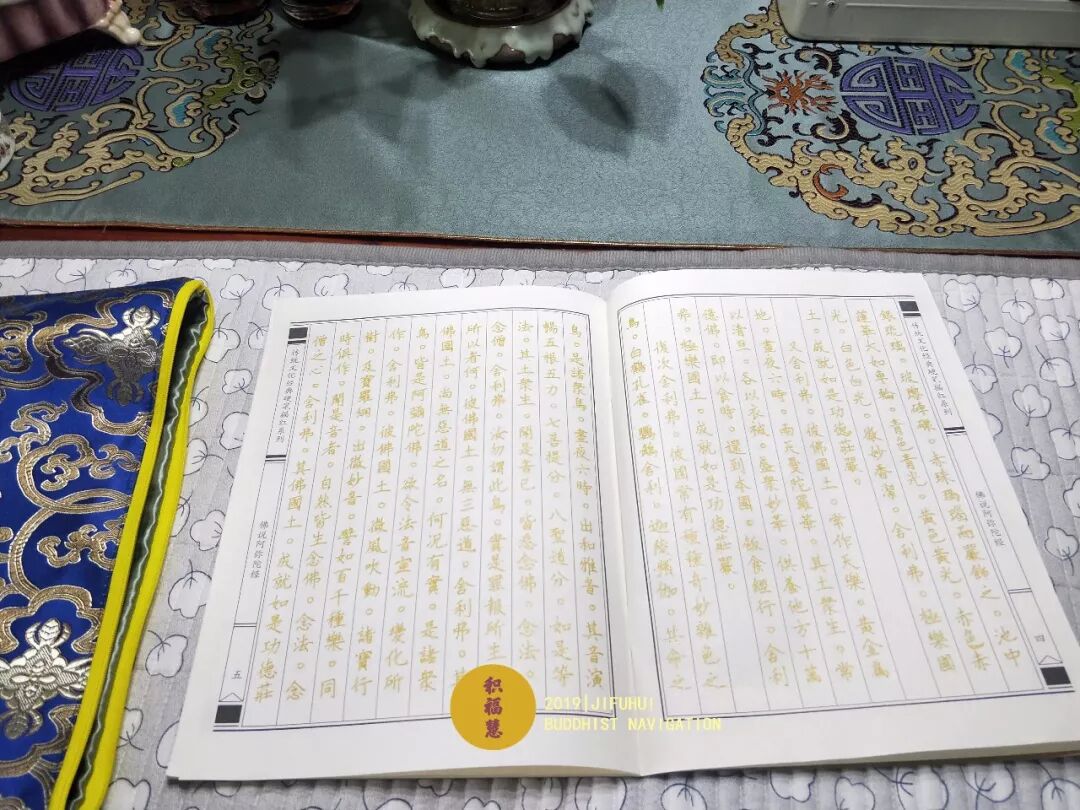 传统文化经典硬笔描红系列
佛说阿弥陀经
四
銀琉璃。玻瓈硨磲。赤珠瑪瑙而嚴飾之。池中
蓮華大如車輪。青色青光。黃色黃光。赤色赤
光。白色白光。微妙香潔。舍利弗。極樂國
土。成就如是功德莊嚴。
又舍利弗。彼佛國土。常作天樂。黃金為
地。晝夜六時。雨天曼陀羅華。其土眾生。常
以清旦。各以衣裓。盛眾妙華。供養他方十萬
億佛。即以食時。還到本國。飯食經行。舍利
弗。極樂國土。成就如是功德莊嚴。
復次舍利弗。彼國常有種種奇妙雜色之
鳥。白鶴孔雀。鸚鵡舍利。迦陵頻伽。共命之
鳥。是諸眾鳥。晝夜六時。出和雅音。其音演
暢五根五力。七菩提分。八聖道分。如是等
法。其土眾生。聞是音已。皆悉念佛。念法。
念僧。舍利弗。汝勿謂此鳥。實是罪報所生
所以者何。彼佛國土。無三惡道。舍利弗。其
佛國土。尚無惡道之名。何況有實。是諸眾
鳥。皆是阿彌陀佛。欲令法音宣流。變化所
作。舍利弗。彼佛國土。微風吹動。諸寶行
樹。及寶羅網。出微妙音。譬如百千種樂。同
時俱作。聞是音者。自然皆生念佛。念法。念
僧之心。舍利弗。其佛國土。成就如是功德莊
传统文化经典硬笔描红系列
佛说阿弥陀经
五
积福慧
2019|JIFUHUI
BUDDHIST NAVIGATION